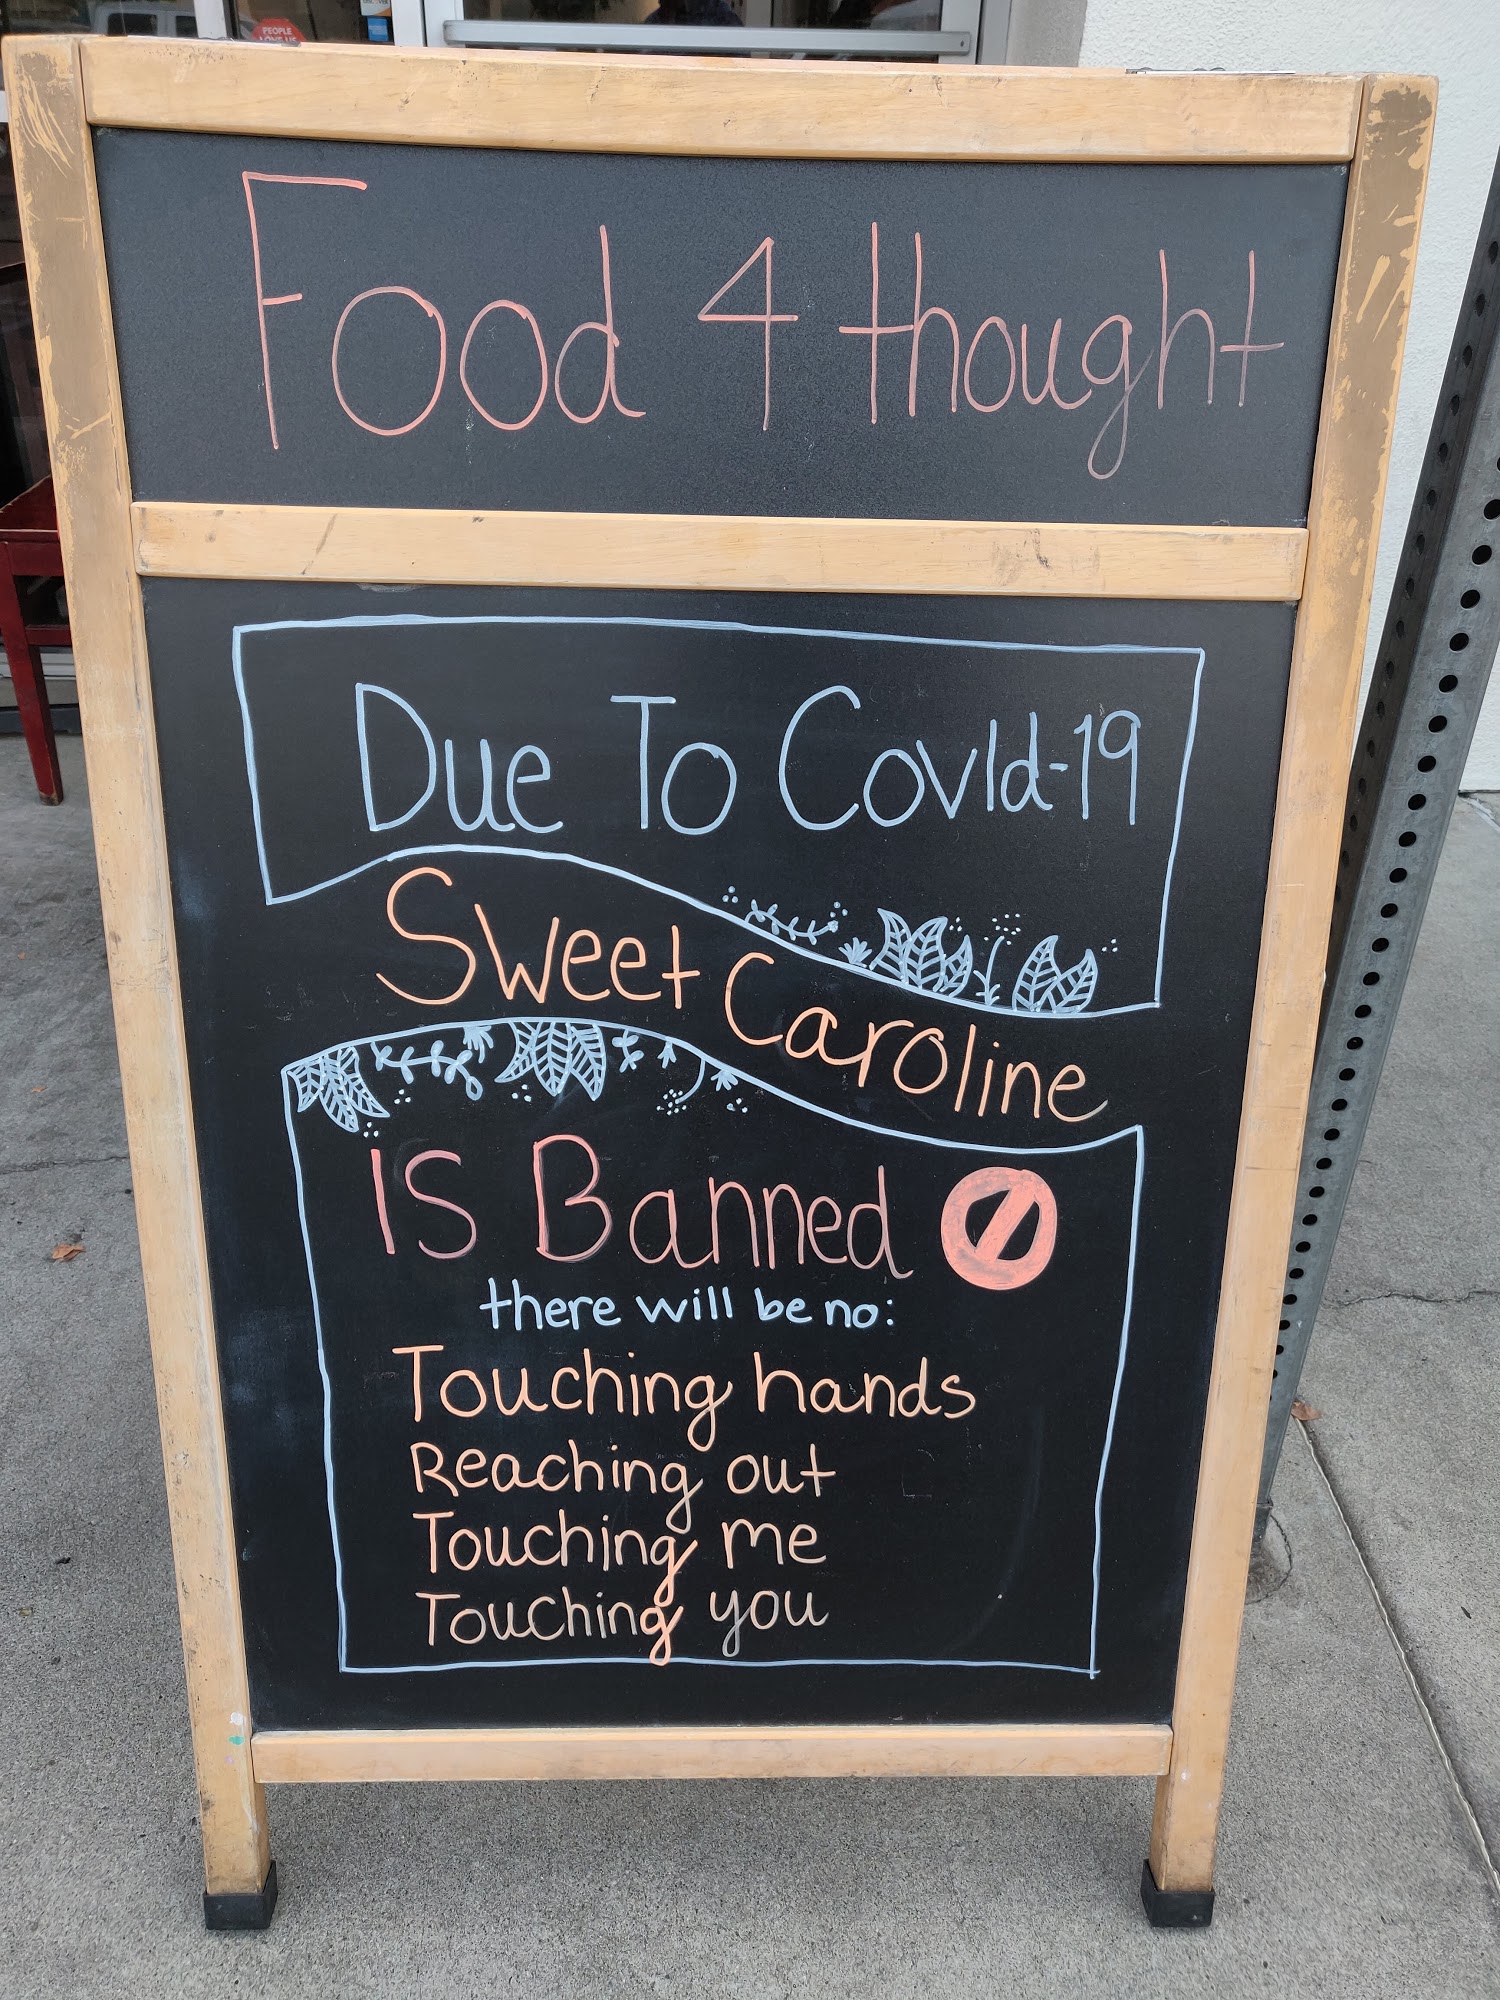 PEOPLE
LOVE US
DISCOVER
Food 4 thought
Due To CovId-19
Sweet Caroline
IS Banned
there will be no:
Touching hands
Reaching out
Touching me
Touching you